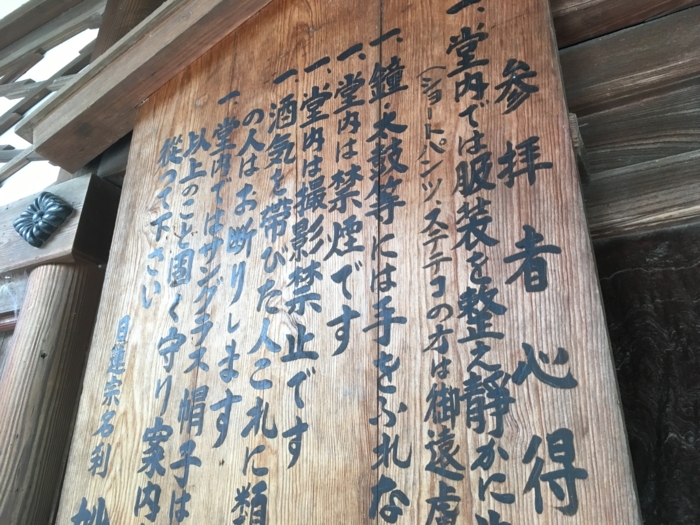 参拝者心得
一、堂内では服装を整え静かに
(ショートパンツ、ステテコの方は御遠慮
一、鐘、太鼓等には手をふれな
一、堂内は禁煙です
一、堂内は撮影禁止です
一、酒気を帯びた人これに類
の人はお断りします
一、堂内ではサングラス帽子は
以上のこと固く守り案内
従って下さい
日蓮宗名刹